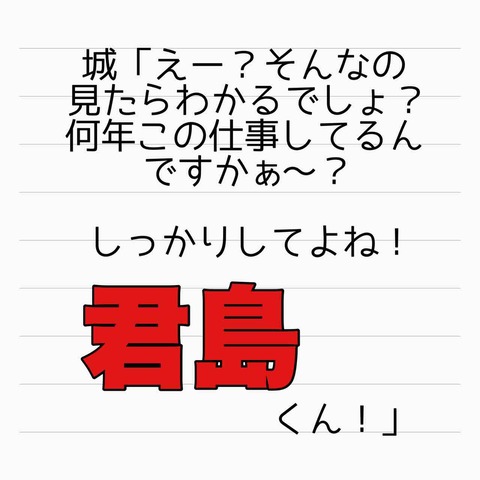 城「えー？そんなの
見たらわかるでしょ？
何年この仕事してるん
ですかぁ～？
しっかりしてよね！
君島
くん！」